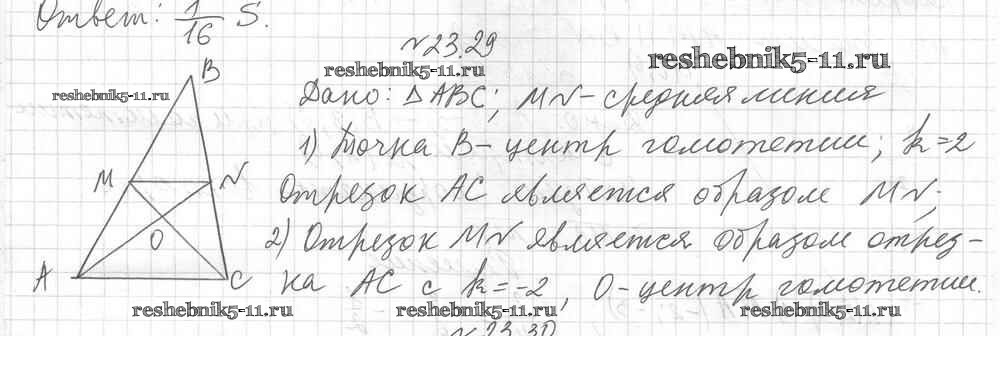 Ответ: 1/16 S.
№23.29
reshebnik5-11.ru
reshebnik5-11.ru
reshebnik5-11.ru
B
Дано: △ABC; MN-средняя линия
1) Точка B-центр гомотетии; k=2
M N
Отрезок AC является образом MN;
O
2) Отрезок MN является образом отрез-
A C
ка AC с k=-2, O-центр гомотетии.
reshebnik5-11.ru reshebnik5-11.ru reshebnik5-11.ru